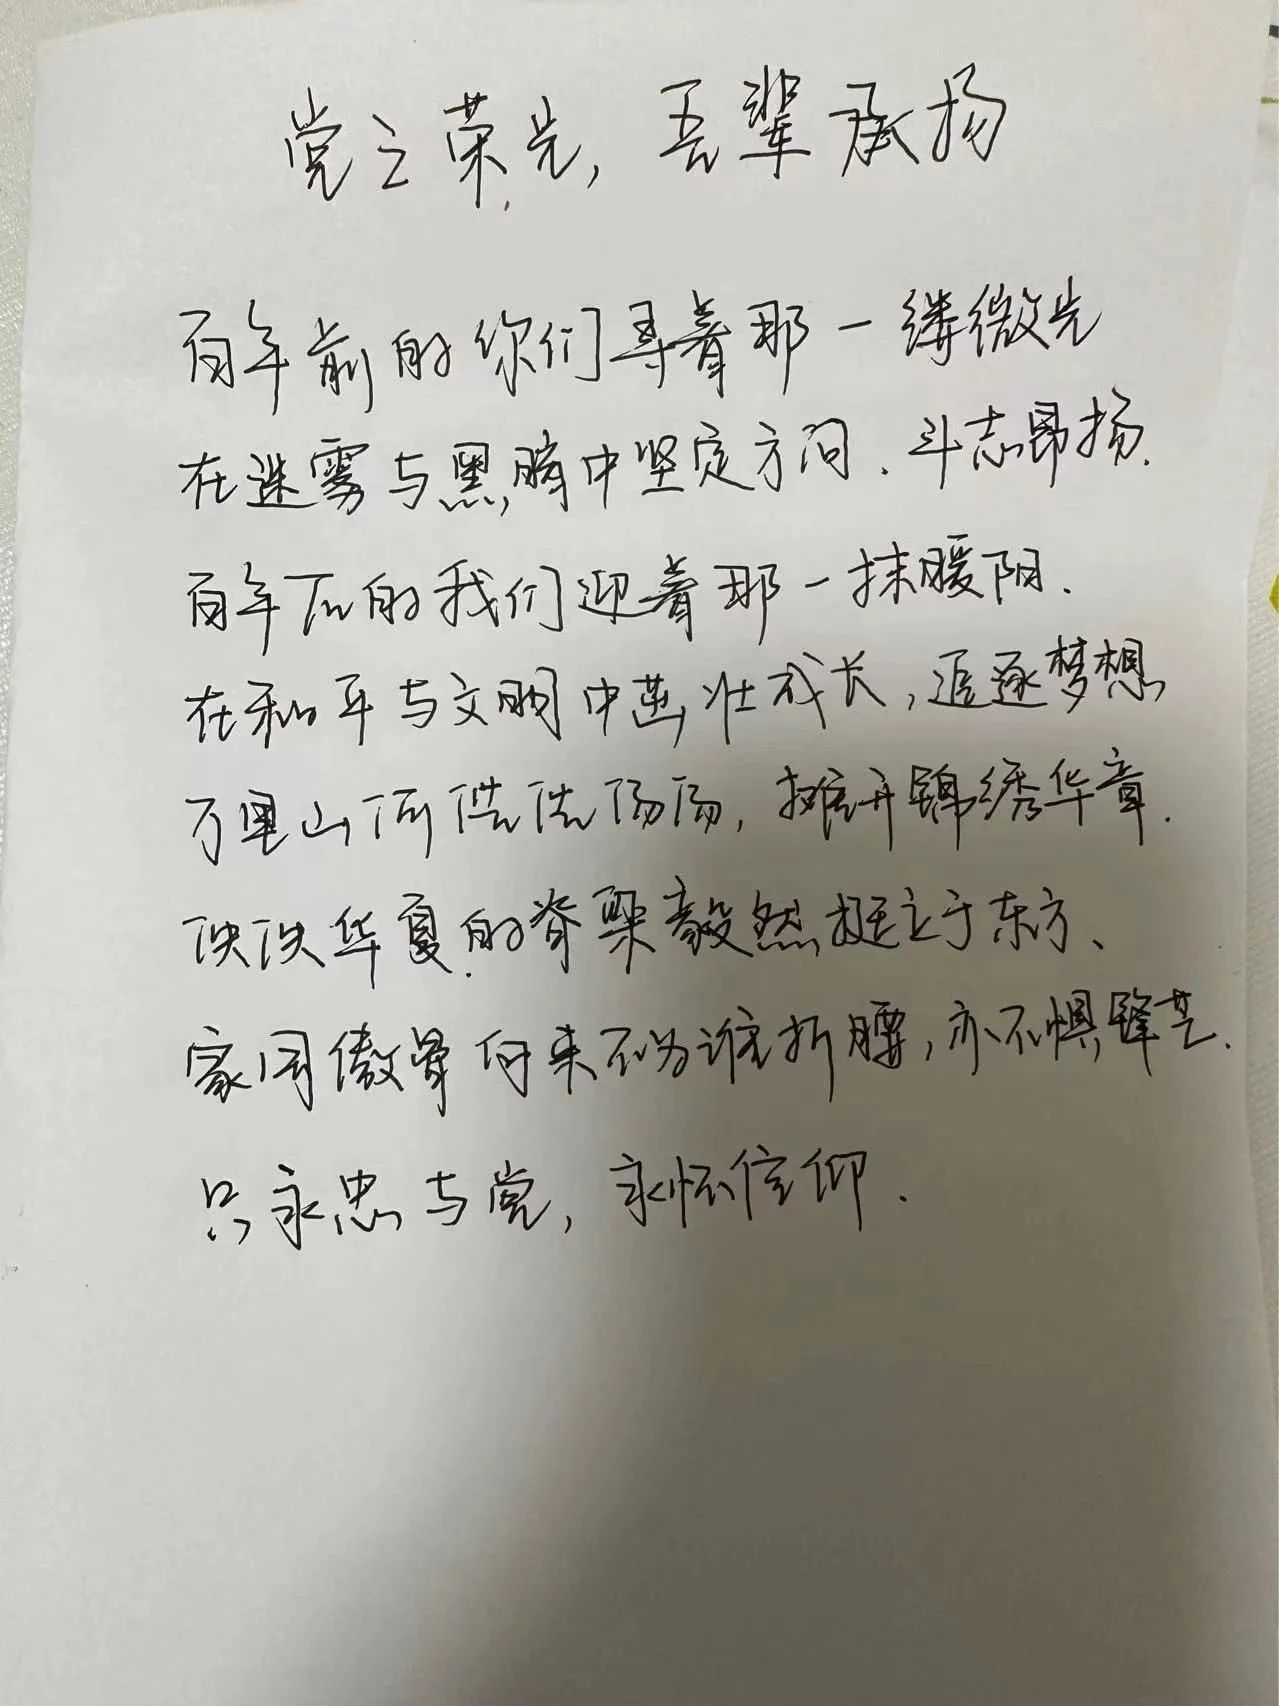 党之荣光，吾辈承扬
百年前的你们寻着那一缕微光
在迷雾与黑暗中坚定方向、斗志昂扬.
百年后的我们迎着那一抹暖阳.
在和平与文明中茁壮成长，追逐梦想
万里山河浩浩汤汤，摊开锦绣华章.
泱泱华夏的脊梁毅然挺立于东方、
家国傲骨向来不为谁折腰，亦不惧锋芒.
只永忠与党，永怀信仰.